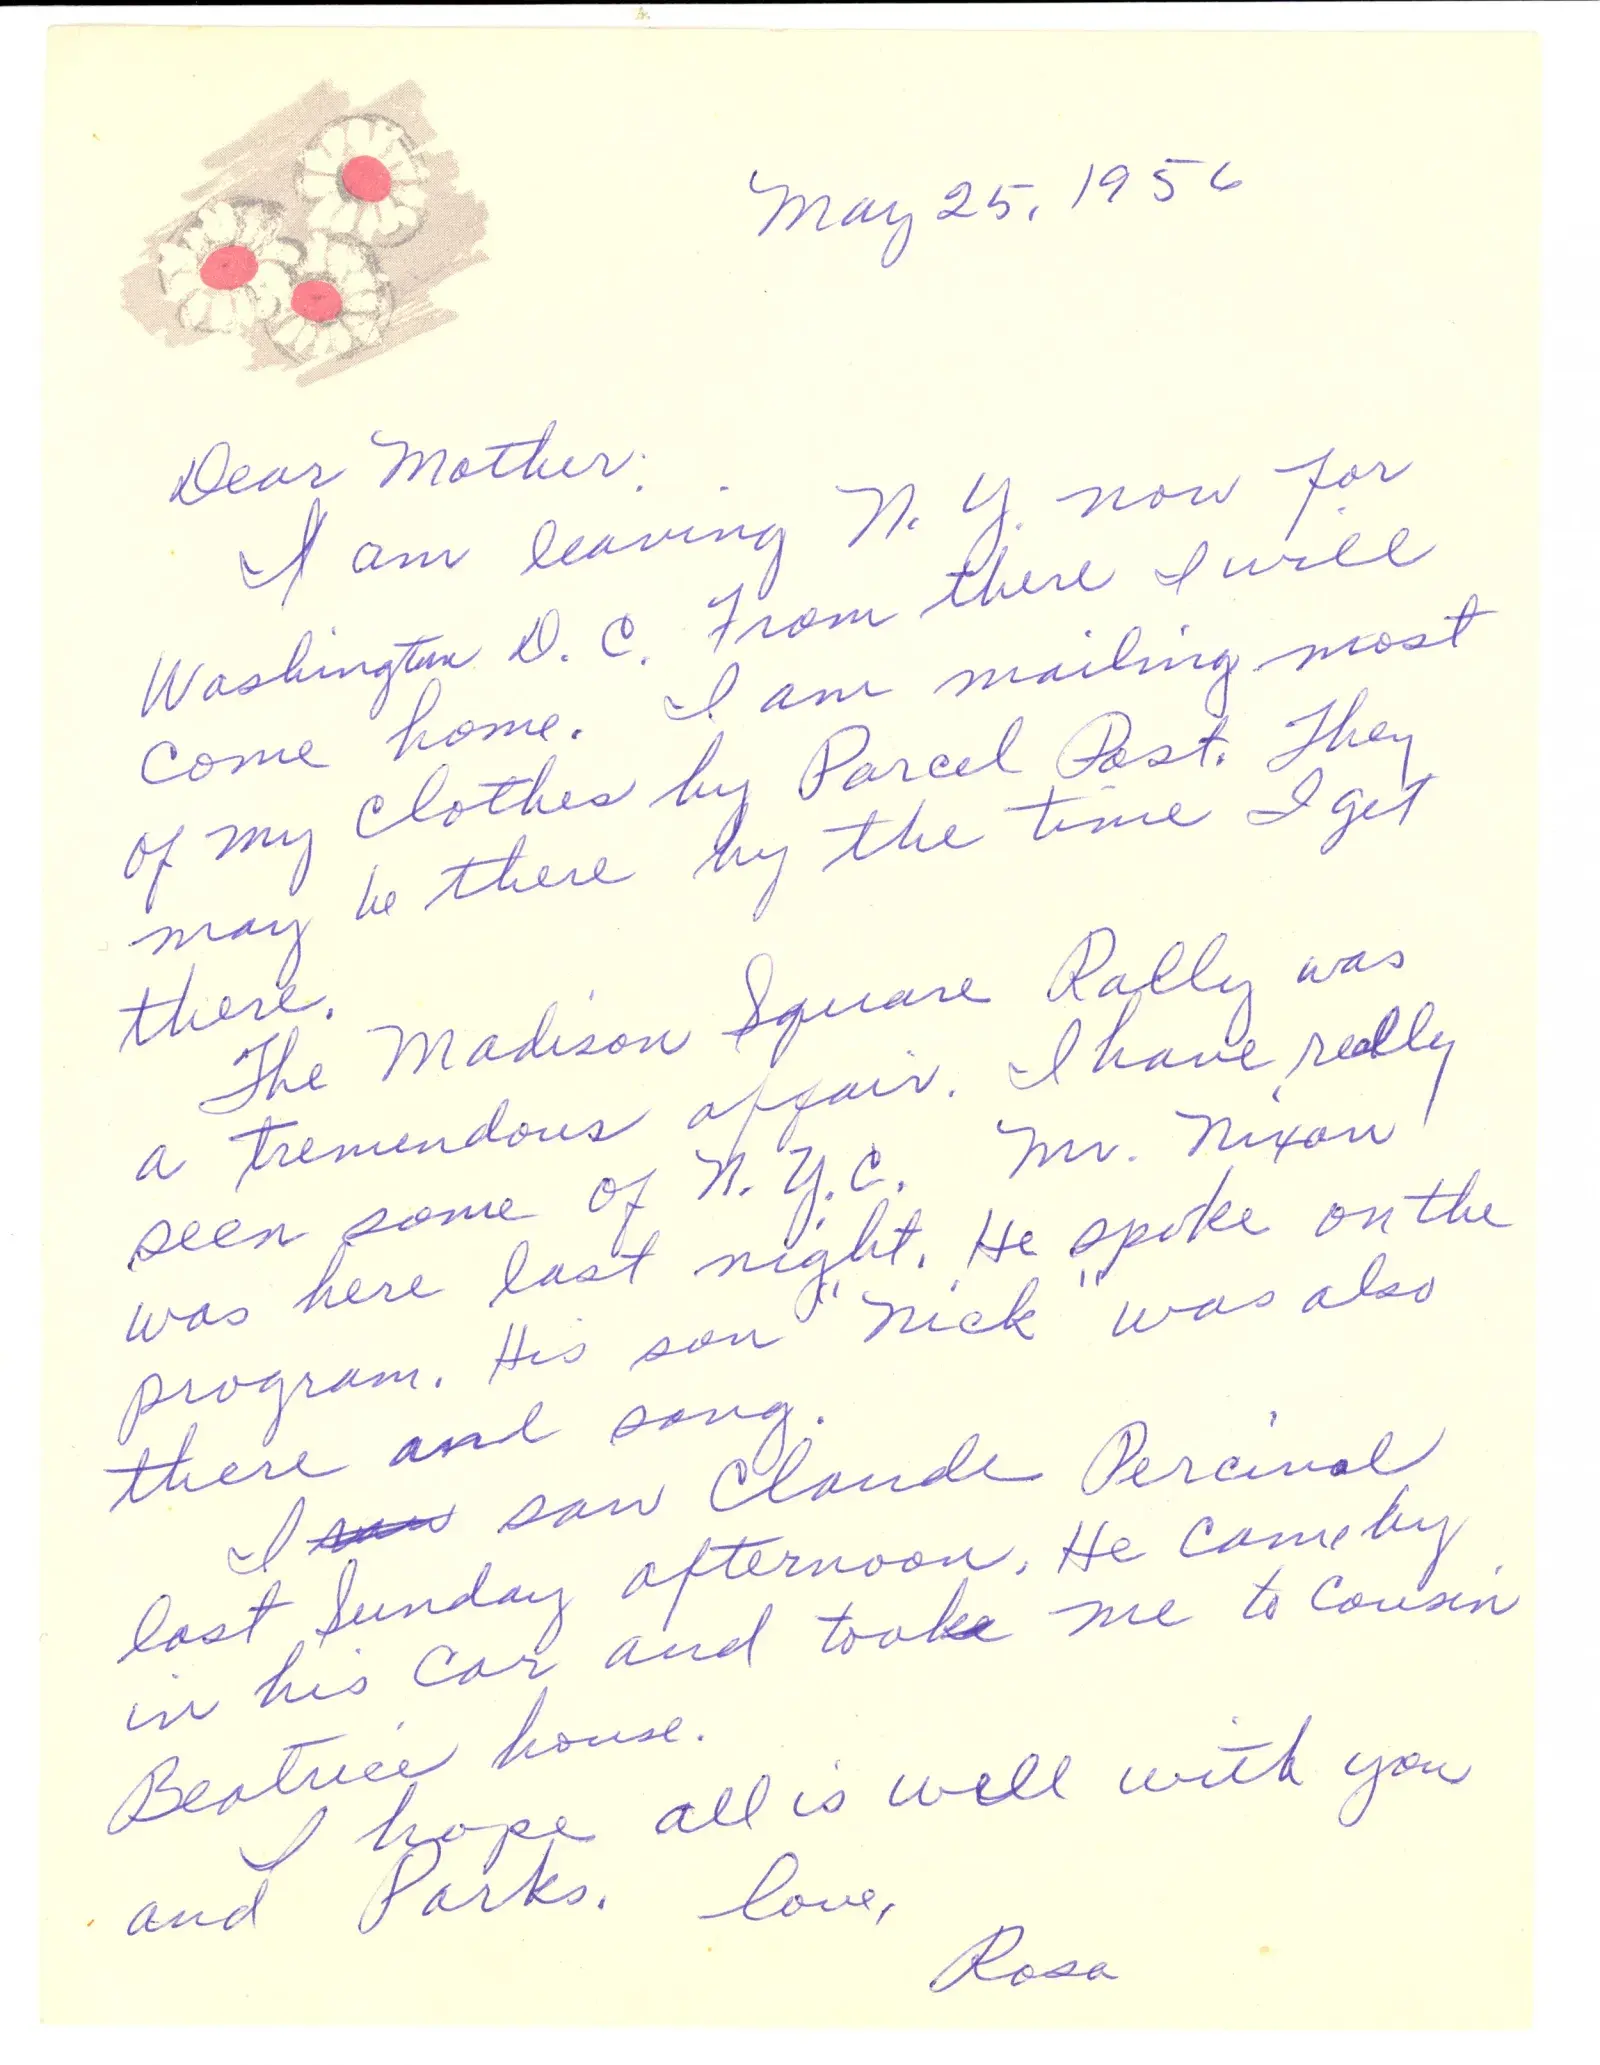 May 25, 1956
Dear Mother:
I am leaving N. Y. now for
Washington D. C. From there I will
come home. I am mailing most
of my clothes by Parcel Post. They
may be there by the time I get
there.
The Madison Square Rally was
a tremendous affair. I have really
seen some of N. Y. C. Mr. Nixon
was here last night. He spoke on the
program. His son "Nick" was also
there and sang.
I saw saw Claude Percival
last Sunday afternoon. He came by
in his car and took me to Cousin
Beatrice house.
I hope all is well with you
and Parks. Love,
Rosa